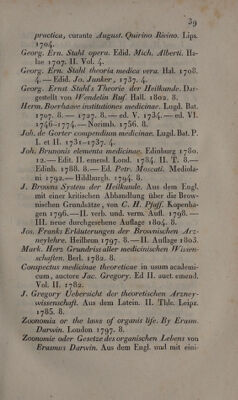 39
practica, curante August. Quirino Ricino. Lips.
1704.
Georg. Ern. Stahl opera. Edid. Mich. Alberti. Ha-
lae 1707. II. Vol. 4.
Georg. Ern. Stahl theoria medica vera. Hal. 1708.
4.— Edid. Jo. Junker. 1737. 4.
Georg. Ernst Stahl's Theorie der Heilkunde. Dar-
gestellt von Wendelin Ruf. Hall. 1802. 8.
Herm. Boerhaave institutiones medicinae. Lugd. Bat.
1707. 8. — 1727. 8.— ed. V. 1734.— ed. VI.
1746—1774.— Norimb. 1756. 8.
Joh. de Gorter compendium medicinae. Lugd. Bat. P.
I. et II. 1731—1737. 4.
Joh. Brunonis elementa medicinae. Edinburg 1780.
12.— Edit. II. emend. Lond. 1784. II. T. 8.—
Edinb. 1788. 8.— Ed. Petr. Moscati. Mediola-
ni 1792.— Hildburgh. 1794. 8.
J. Browns System der Heilkunde. Aus dem Engl.
mit einer kritischen Abhandlung über die Brow-
nischen Grundsätze, von C. H. Pfaff. Kopenha-
gen 1796.— II. verb. und verm. Aufl. 1798.—
III. neue durchgesehene Auflage 1804. 8.
Jos. Frank: Erläuterungen der Brownischen Arz-
neylehre. Heilbron 1797. 8.— II. Auflage 1803.
Mark. Herz Grundriss aller medicinischen Wissen-
schaften. Berl. 1782. 8.
Conspectus medicinae theoreticae in usum academi-
cum, auctore Jac. Gregory. Ed II. auct. emend.
Vol. II. 1782.
J. Gregory Uebersicht der theoretischen Arzney-
wissenschaft. Aus dem Latein. II. Thle. Leipz.
1785. 8.
Zoonomia or the laws of organis life. By Erasm.
Darwin. London 1797. 8.
Zoonomie oder Gesetze des organischen Lebens von
Erasmus Darwin. Aus dem Engl. und mit eini-